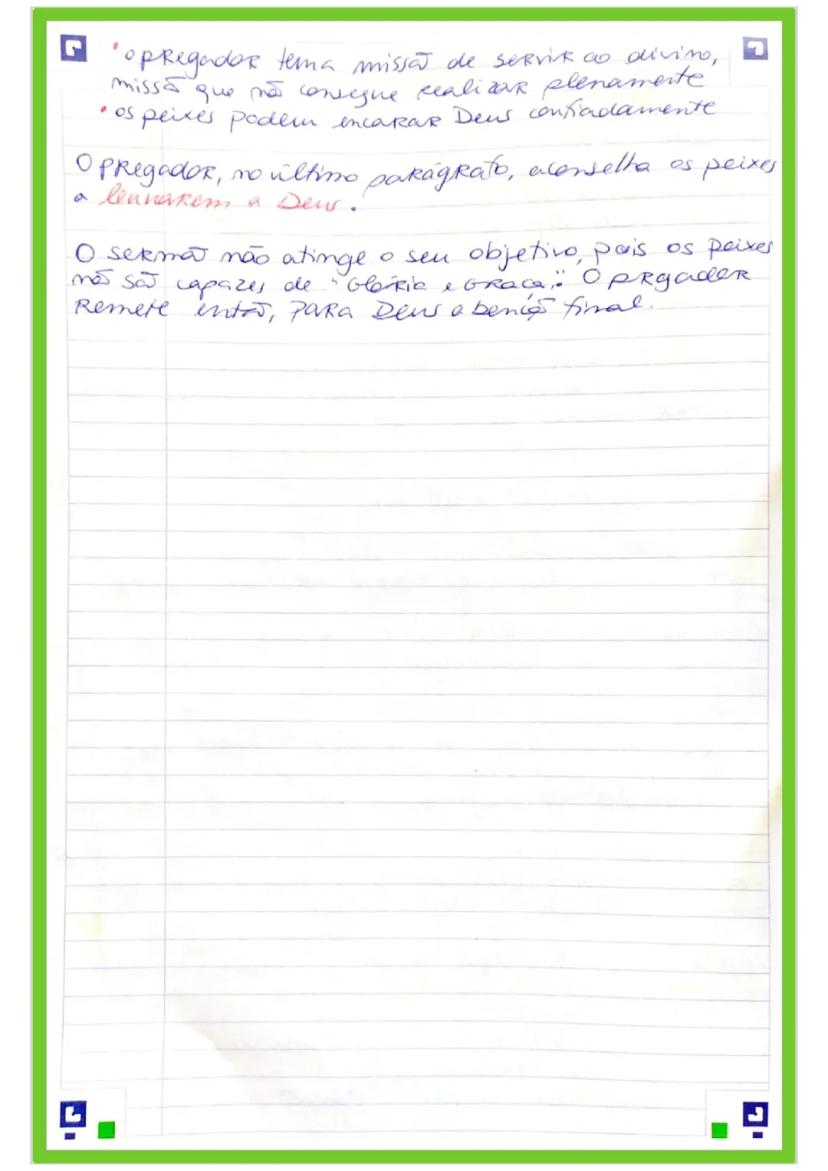 • o pregador tem a missão de servir ao divino,
missão que não consegue realizar plenamente
• os peixes podem encarar Deus confiadamente
O pregador, no último parágrafo, aconselha os peixes
a louvarem a Deus.
O sermão não atinge o seu objetivo, pois os peixes
não são capazes de "Glória e Graça". O prgador
remete então, para Deus a benção final.